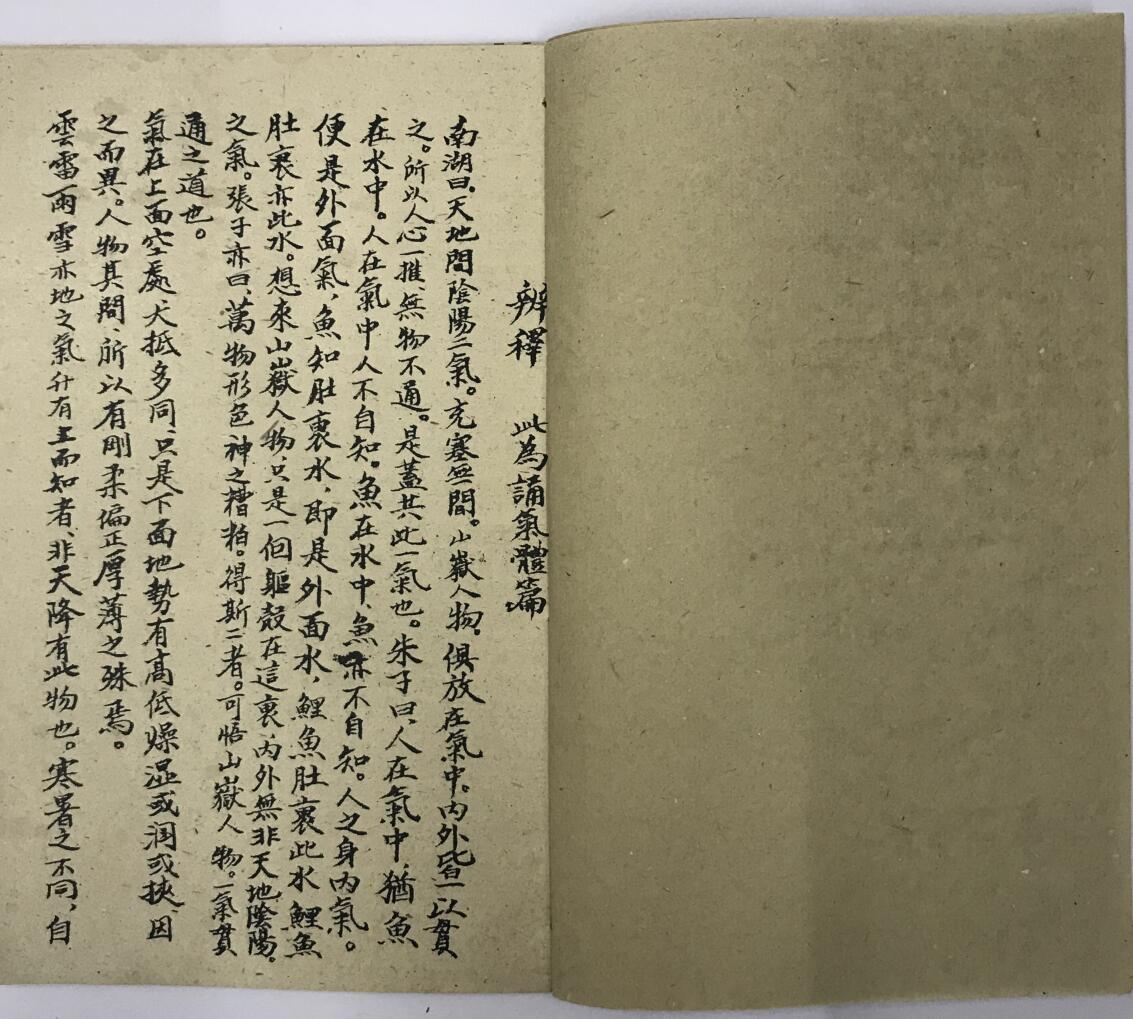 辨釋　此為誦氣體篇
南湖曰。天地間陰陽二氣。充塞無間。山嶽人物。俱放在氣中。內外皆一以貫
之。所以人心一推、無物不通。是蓋共此一氣也。朱子曰、人在氣中、猶魚
在水中。人在氣中人不自知。魚在水中、魚亦不自知。人之身內氣。
便是外面氣、魚知肚裏水、即是外面水、鯉魚肚裏此水鯉魚
肚裏亦此水。想來山嶽人物、只是一個軀殼在這裏、內外無非天地陰陽。
之氣。張子亦曰、萬物形色神之糟粕。得斯二者。可悟山嶽人物。一氣貫
通之道也。
氣在上面空處、大抵多同、只是下面地勢有高低燥湿或润或挾、因
之而異。人物其間、所以有剛柔偏正厚薄之殊焉。
雲雷雨雪亦地之氣升有主而知者、非天降有此物也。寒暑之不同、自